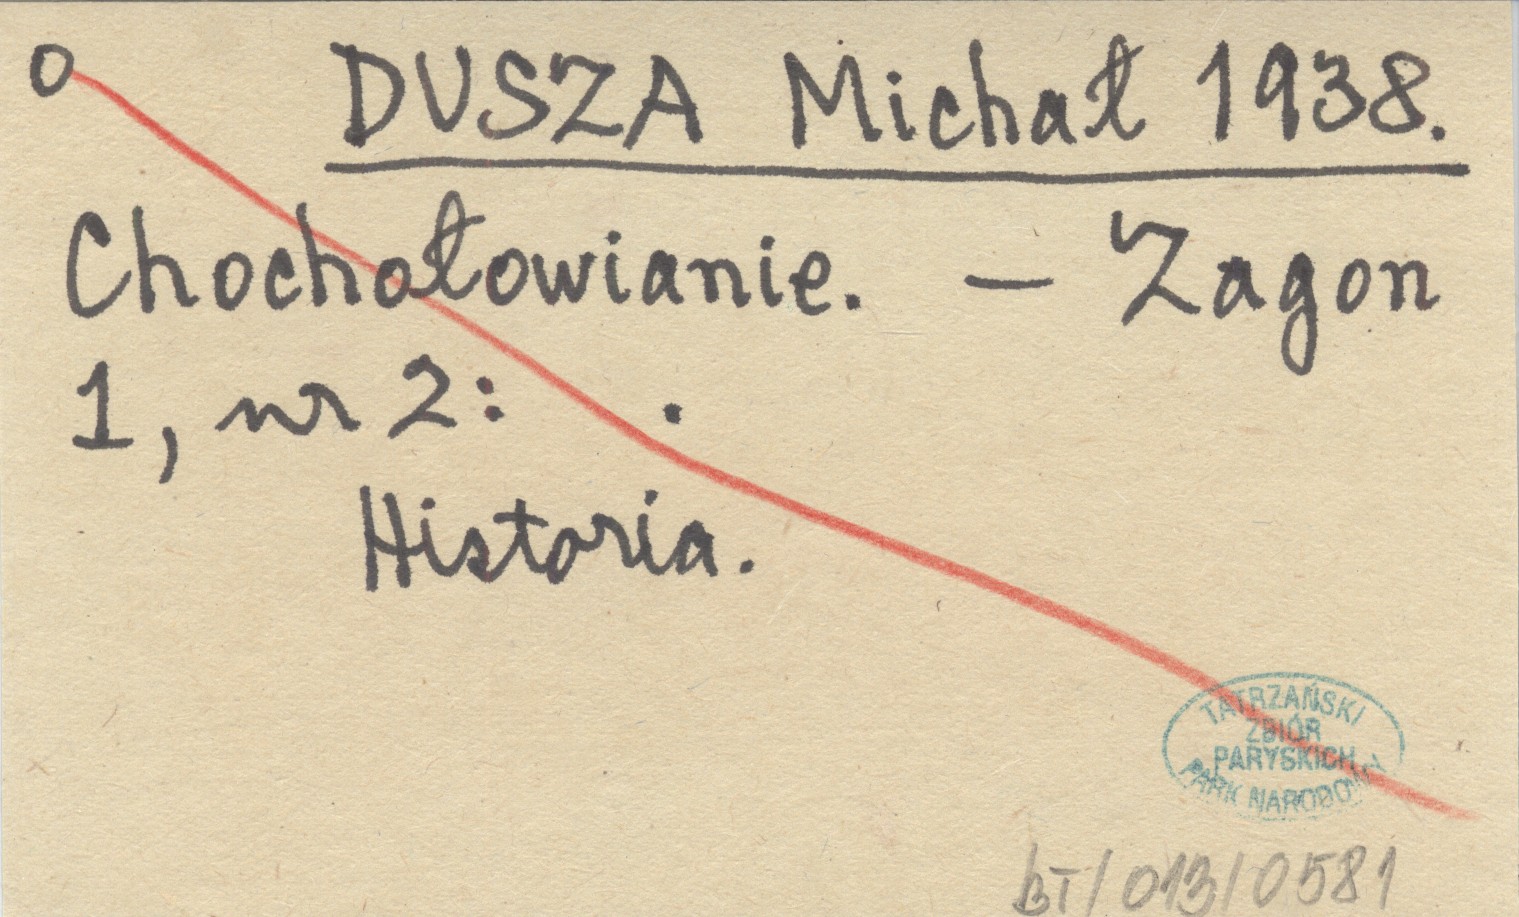 O DUSZA Michał 1938.
Chochołowianie. — Zagon
1, nr 2: .
Historia.
TATRZAŃSKI
ZBIÓR
PARYSKICH
PARK NARODOWY
BT/013/0581